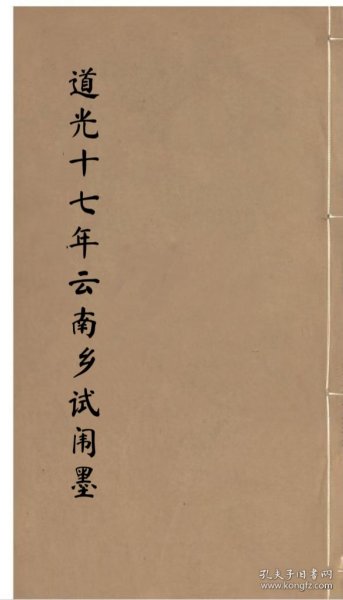 道光十七年云南乡试闱墨
孔夫子旧书网
www.kongfz.com